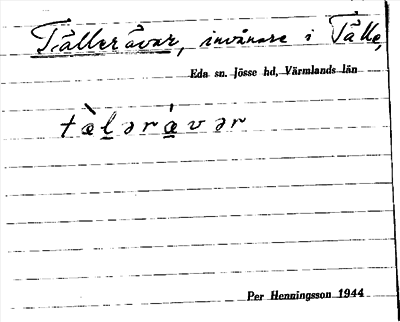 Tälleråvar, invånare i Tälle,
Eda sn. Jösse hd, Värmlands län
tæ̀lərávər
Per Henningsson 1944